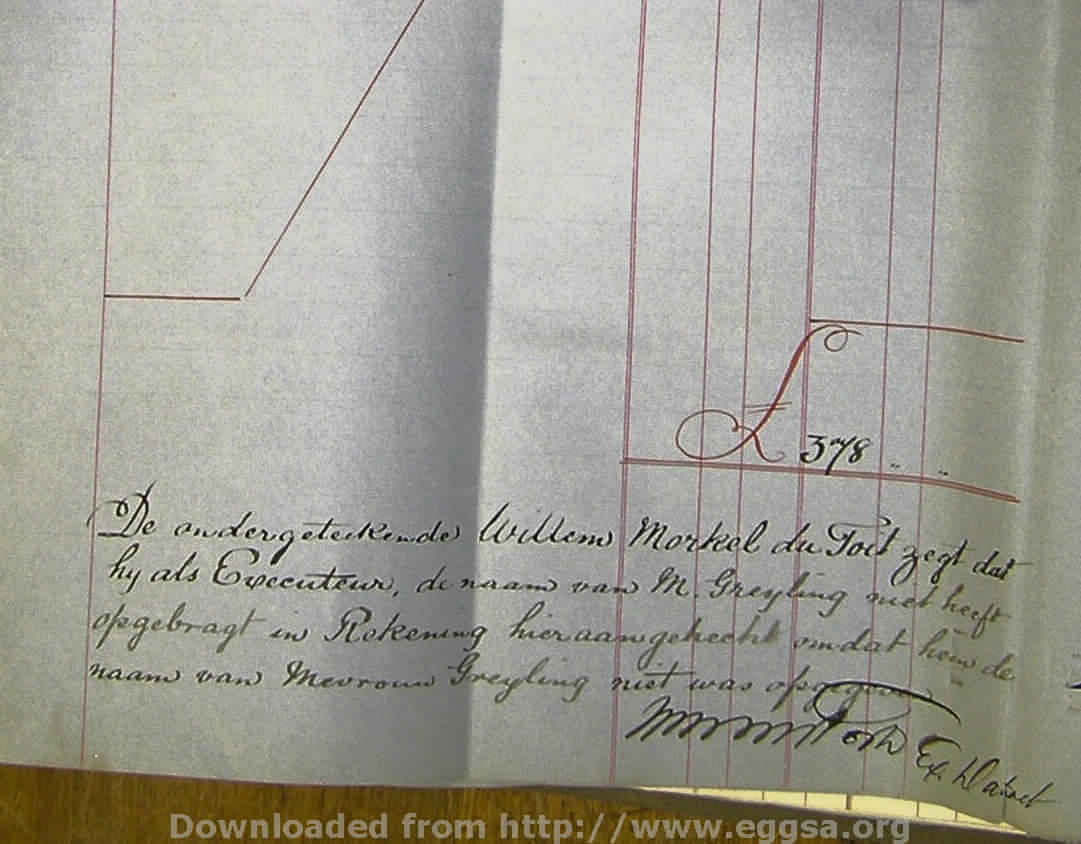 £ 378 " "
De ondergeteekende Willem Morkel du Toit zegt dat
hy als Executeur, de naam van M. Greyling niet heeft
opgebragt in Rekening hieraangehecht omdat hem de
naam van Mevrouw Greyling niet was opgegeven
Ex. Datief
Downloaded from http://www.eggsa.org